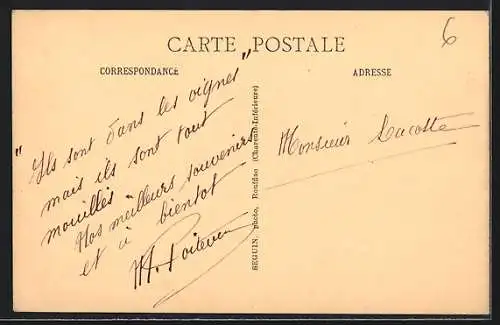 6
CARTE POSTALE
CORRESPONDANCE
ADRESSE
" Ils sont dans les vignes "
mais ils sont tout
mouillés
Nos meilleurs souvenirs
et à bientot
Poitevin
SEGUIN, photo, Rouffiac (Charente-Inférieure)
Monsieur Lacotte